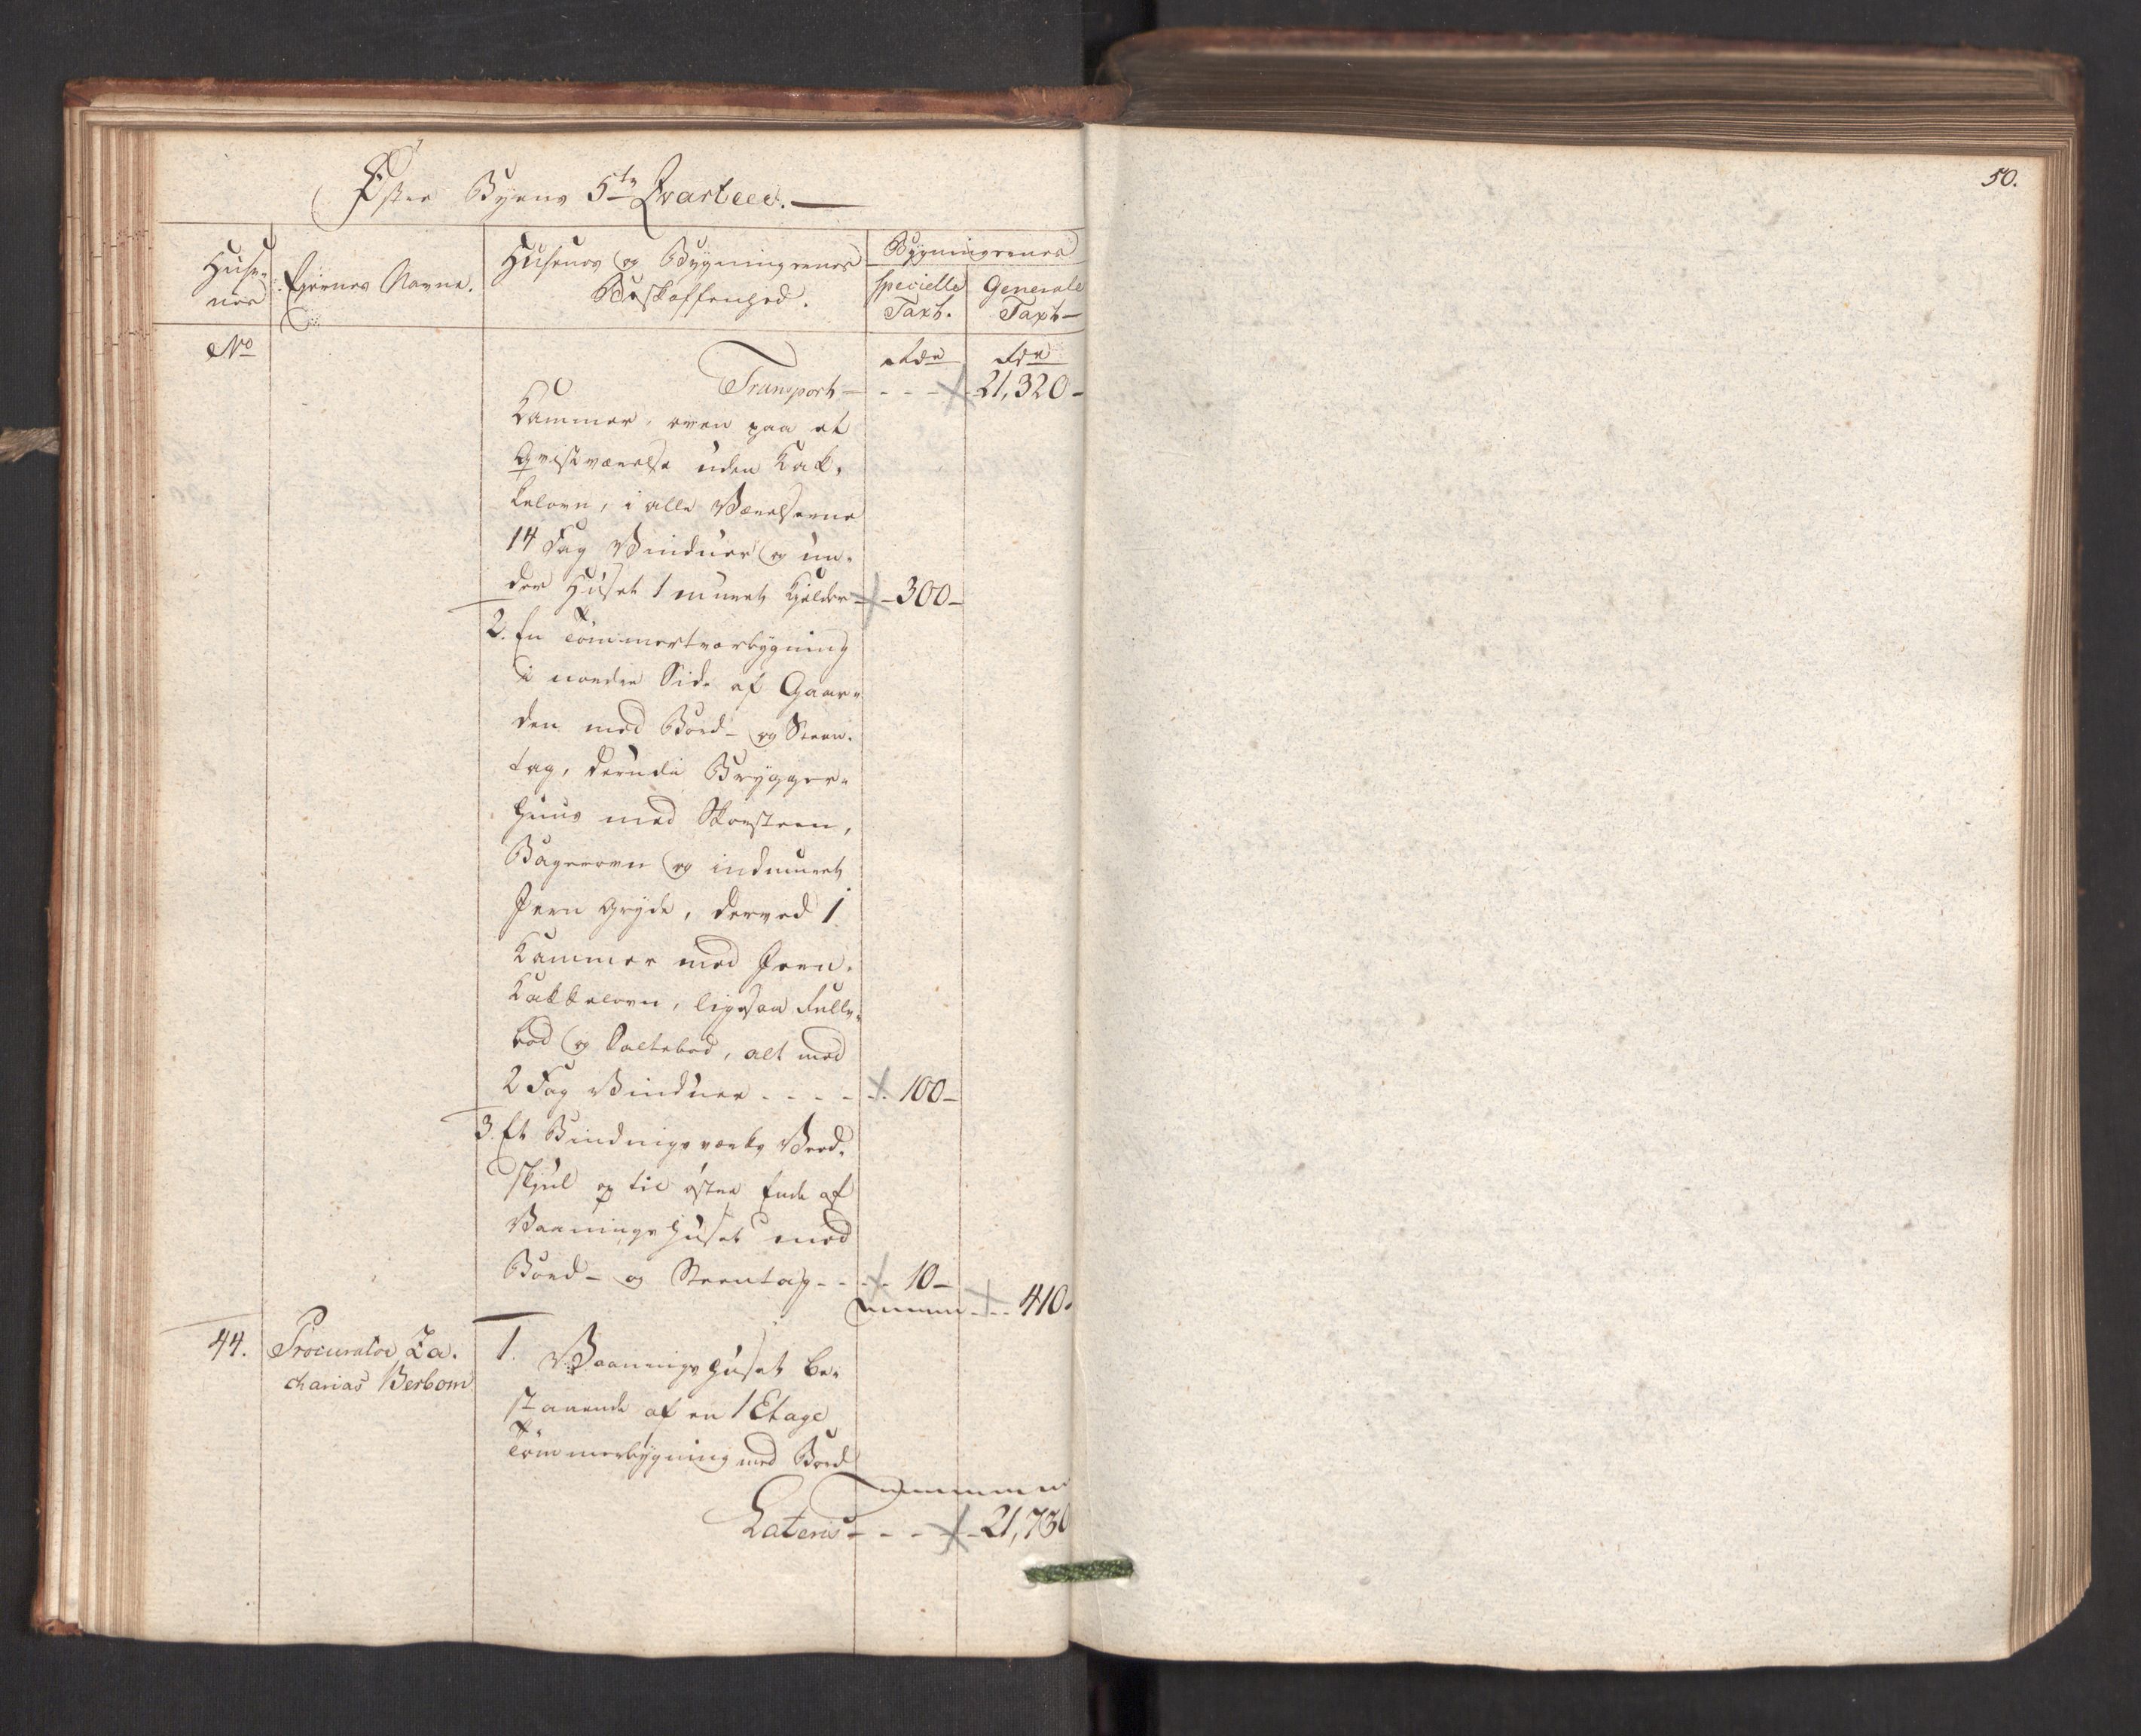 Øster Byens 5te Qvarteer.
Huse-
nes
Ejernes Navne.
Husenes og Bygningernes
Beskaffenhed.
Bygningernes
specielle
Taxt.
Generale
Taxt
No
Rdr
Rdr
Transport - - - 21,320-
Kammer, oven paa et
Qvistværelse uden Kak-
kelovn, i alle Værelserne
14 Fag Vinduer og un-
der Huset 1 muret Kjelder - 300-
2. En Tømmertværbygning
i nordre Side af Gaar-
den med Bord- og Steen-
tag, derudi Brygger-
huus med Skorsteen,
Bagerovn og indmuret
Jern Gryde, derved 1
Kammer med Jern-
Kakkelovn, ligesaa Rulle-
bod og Saltebod, alt med
2 Fag Vinduer - - - - 100-
3. Et Bindingsverks Ved-
skjul op til østre Ende af
Vaaningshuset med
Bord- og Steentag - - - 10-
410.
44.
Procurator Za-
charias Berbom
1. Vaaningshuset be-
staaende af en 1 Etage
Tømmerbygning med Bord
Lateris - - - 21,730
50.